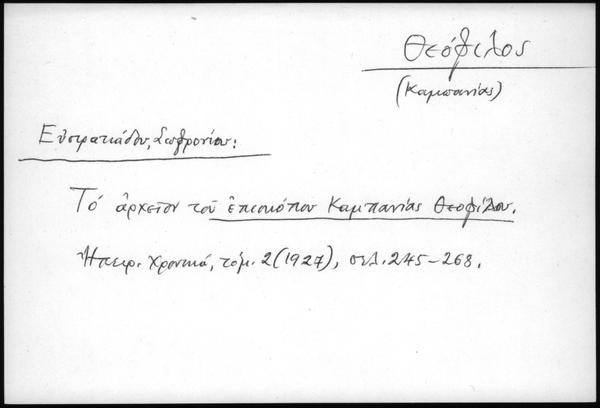 Θεόφιλος
(Καμπανίας)
Εὐστρατιάδου, Σωφρονίου:
Τό ἀρχεῖον τοῦ ἐπισκόπου Καμπανίας Θεοφίλου.
Ἠπειρ. Χρονικά, τόμ. 2 (1927), σελ. 245-268.